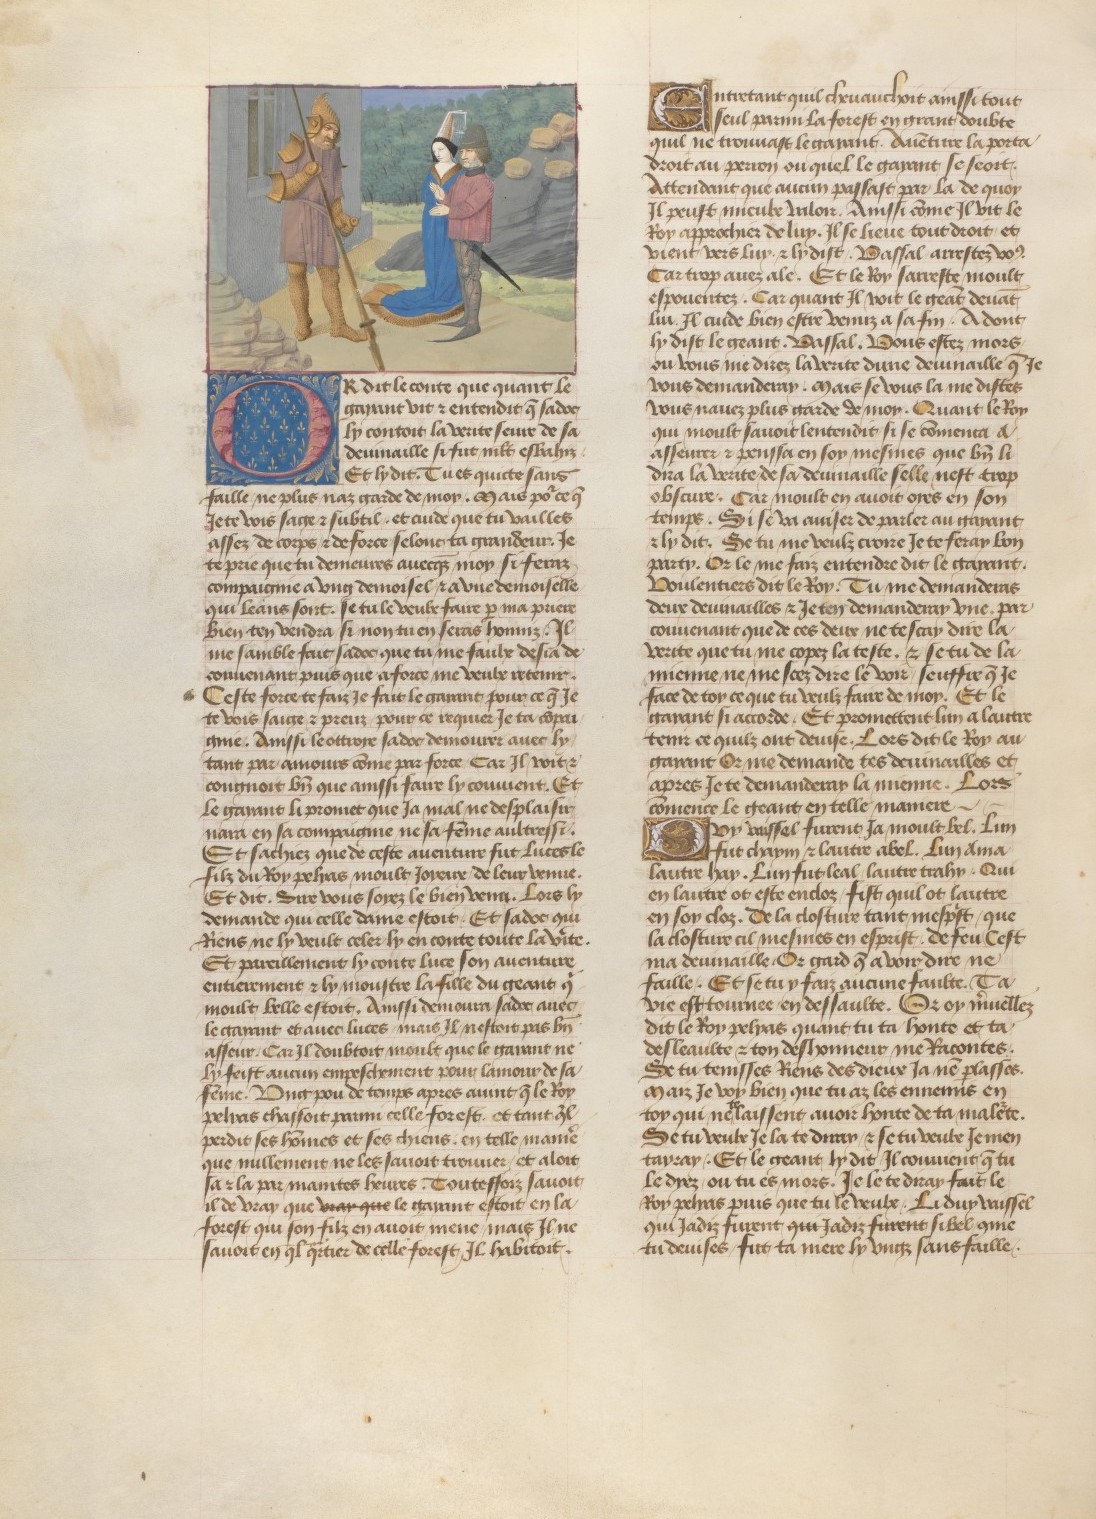 OR dit le conte que quant le
gayant vit ⁊ entendit q̃ sadoc
ly contoit la verite seure de sa
deuinaille si fut mlt̃ esbahiz.
Et ly dit. Tu es quicte sans
faille ne plus naz garde de moy. Mais por̃ ce q̃
Je te vois sage ⁊ subtil. et cuide que tu vailles
assez de corps ⁊ de force selonc ta grandeur. Je
te prie que tu demeures auecq̃s moy si feraz
compaignie a vng demoisel ⁊ a vne demoiselle
qui leans sont. Se tu le veulx faire p ma priere
bien ten vendra si non tu en seras honniz. Il
me samble fait sadoc que tu me faulx desia de
conuenant puis que a force me veulx retenir.
Ceste force te faiz Je fait le gayant pour ce q̃ Je
te vois saige ⁊ preuz pour ce requier Je ta cõpai
gnie. Ainssi le ottroye sadoc demourer auec ly
tant par amours cõme par force. Car Il voit ⁊
congnoit bñ que ainssi faire ly conuient. Et
le gayant li promet que Ja mal ne desplaisir
nara en sa compaignie ne sa fẽme aultressi.
Et sachiez que de ceste auenture fut Luces le
filz du Roy pelyas moult Joyeux de leur venue.
Et dit. Sire vous soyez le bien venu. Lors ly
demande qui celle dame estoit. Et sadoc qui
Riens ne ly veult celer ly en conte toute la v̾ite.
Et pareillement ly conte luce son auenture
entierement ⁊ ly monstre la fille du geant q̃
moult belle estoit. Ainssi demoura sadoc auec
le gayant et auec luces mais Il nestoit pas bñ
asseur. Car Il doubtoit moult que le gayant ne
ly feist aucun empeschement pour lamour de sa
fẽme. Vng pou de temps apres auint q̃ le Roy
pelyas chassoit parmi celle forest. et tant q̃l
perdit ses hõmes et ses chiens. en telle manie͛
que nullement ne les sauoit trouuer et aloit
sa ⁊ la par maintes heures. Touteffoiz sauoit
il de vray que vray que le gayant estoit en la
forest qui son filz en auoit mene mais Il ne
sauoit en q̃l q̃rtier de celle forest Il habitoit.
Entretant quil cheuauchoit ainssi tout
seul parmi la forest en grant doubte
quil ne trouuast le gayant. Auẽture la porta
droit au perron ou quel le gayant se seort.
Attendant que aucun passast par la de quoy
Il peust mieulx valoir. Ainssi cõme Il vit le
Roy approchier de luy. Il se lieue tout droit et
vient vers luy. ⁊ ly dist. Vassal arrestez voꝰ.
Car trop auez ale. Et le Roy sarreste moult
espouentez. Car quant Il voit le geãt deuãt
lui. Il cuide bien estre venuz a sa fin. Adont
ly dist le geant. Vassal. Vous estez mors
ou vous me direz la verite dune deuinaille q̃ Je
vous demanderay. Mais se vous la me distes
vous nauez plus garde de moy. Quant le Roy
qui moult sauoit lentendit si se cõmenca a
asseurer ⁊ penssa en soy mesmes que bñ li
dira la verite de sa deuinaille selle nest trop
obscure. Car moult en auoit oyes en son
temps. Si se va auiser de parler au gayant
⁊ ly dit. Se tu me veulz croire Je te feray bon
party. Or le me faiz entendre dit le gayant.
Voulentiers dit le Roy. Tu me demanderas
deux deuinailles ⁊ Je ten demanderay vne. par
conuenant que de ces deux ne te scay dire la
verite que tu me copez la teste. ⁊ se tu de la
mienne ne me scez dire le voir seuffre q̃ Je
face de toy ce que tu veulz faire de moy. Et le
gayant si accorde. Et promettent lun a lautre
tenir ce quilz ont deuise. Lors dit le Roy au
gayant Or me demande tes deuinailles et
apres Je te demanderay la mienne. Lors
cõmence le geant en telle maniere
Duy vaissel furent Ja moult bel. Lun
fut chayn ⁊ lautre abel. Lun ama
lautre hay. Lun fut leal lautre trahy. Qui
en lautre ot este encloz fist quil ot lautre
en soy cloz. De la closture tant mesp̾st que
la closture cil mesmes en esprist. de feu Cest
ma deuinaille. Or gard q̃ a voir dire ne
faille. Et se tu y faiz aucune faulte. Ta
vie est tournee en dessaulte. Or oy m̾uellez
dit le Roy pelyas quant tu ta honte et ta
desleaulte ⁊ ton deshonneur me Racontes.
Se tu tenisses Riens des dieux Ja nẽ plasses.
Maiz Je voy bien que tu az les ennemis en
toy qui ne te laissent auoir honte de ta malẽte.
Se tu veulx Je la te diray ⁊ se tu veulx Je men
tayray. Et le geant ly dit Il conuient q̃ tu
le dyez ou tu es mors. Je le te diray fait le
Roy pelyas puis que tu le veulx. Li duy vaissel
qui Jadiz furent qui Jadiz furent si bel q̃me
tu deuises fut ta mere ly vngz sans faille.